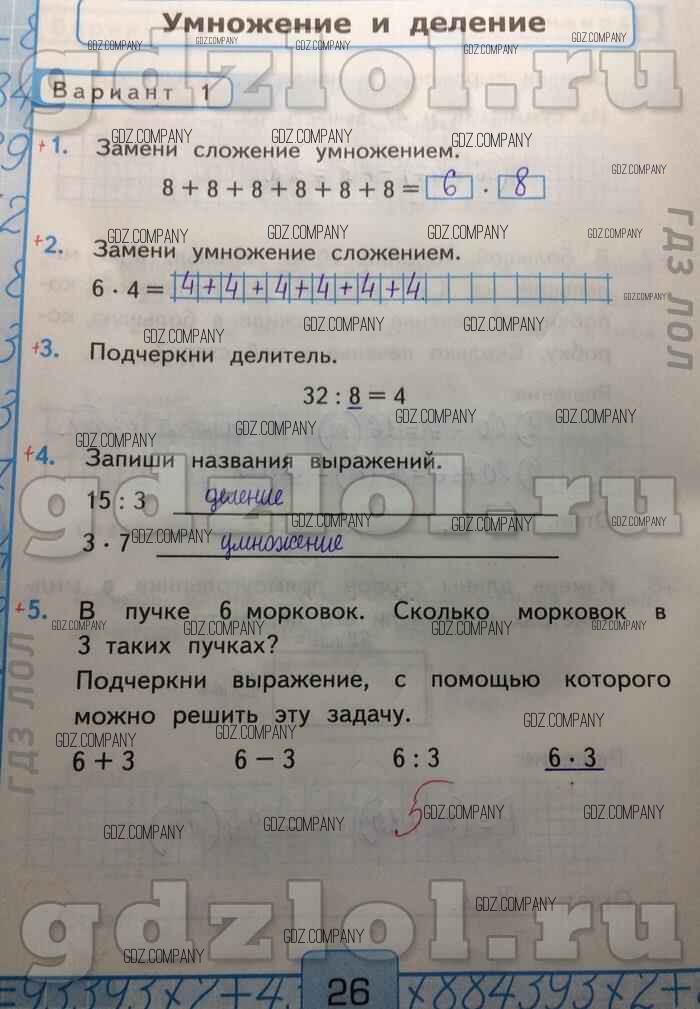 Умножение и деление
Вариант 1
+1. Замени сложение умножением.
8 + 8 + 8 + 8 + 8 + 8 = 6 · 8
+2. Замени умножение сложением.
6 · 4 = 4+4+4+4+4+4
+3. Подчеркни делитель.
32 : 8 = 4
+4. Запиши названия выражений.
15 : 3 деление
3 · 7 умножение
+5. В пучке 6 морковок. Сколько морковок в
3 таких пучках?
Подчеркни выражение, с помощью которого
можно решить эту задачу.
6 + 3 6 − 3 6 : 3 6 · 3
5
26
gdzlol.ru
gdzlol.ru
gdzlol.ru
ГДЗ ЛОЛ
ГДЗ ЛОЛ
GDZ.COMPANY